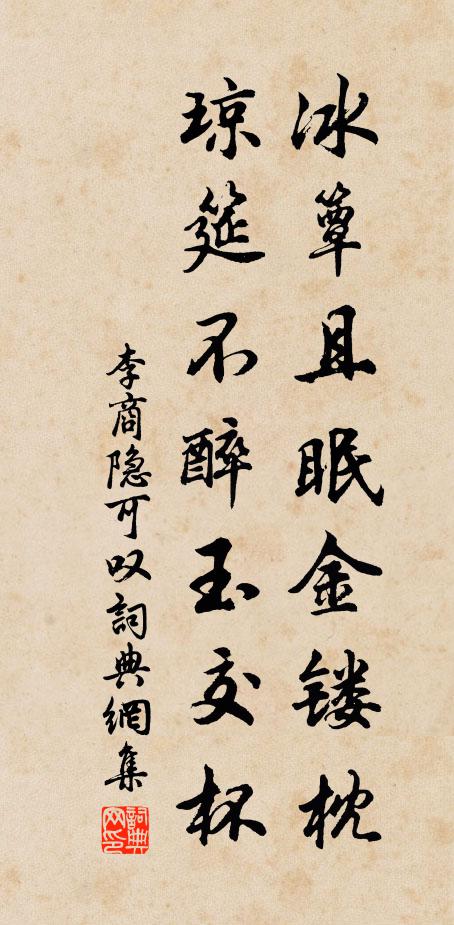 冰簟且眠金镂枕
琼筵不醉玉交杯
李商隐可叹詞典網集
詞典网印